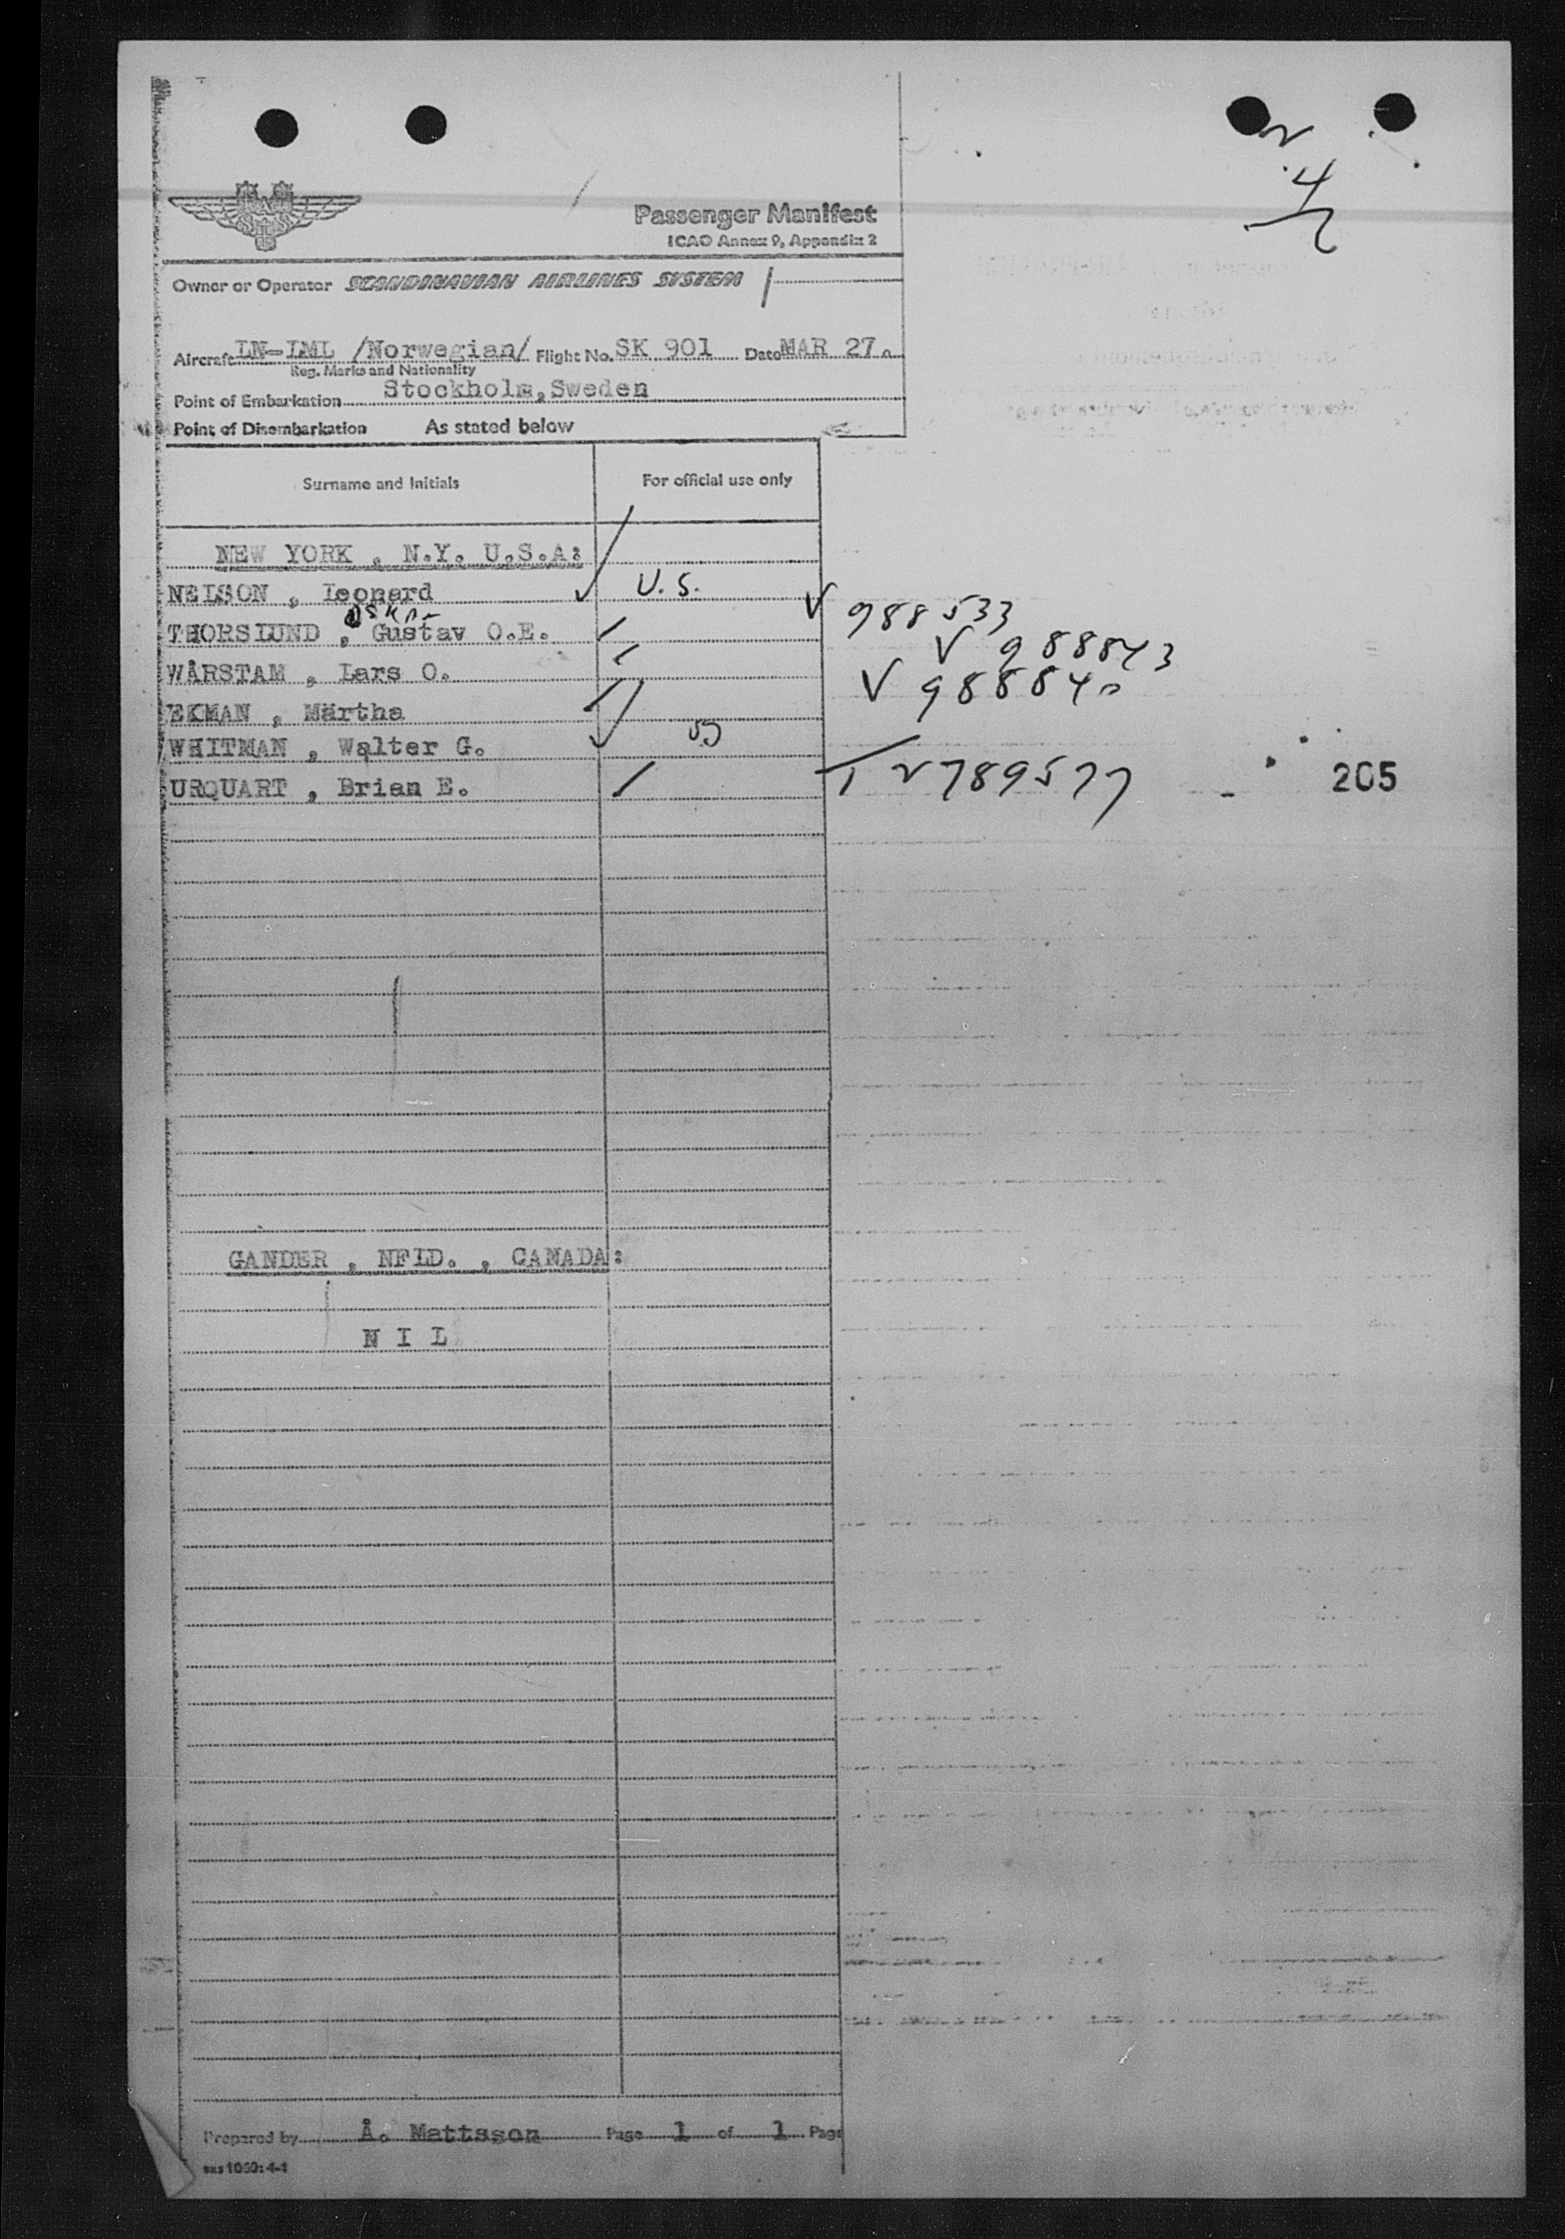 Passenger Manifest
ICAO Annex 9, Appendix 2
Owner or Operator SCANDINAVIAN AIRLINES SYSTEM
Aircraft LN-LML /Norwegian/ Flight No. SK 901 Date MAR 27.
Reg. Marks and Nationality
Point of Embarkation Stockholm, Sweden
Point of Disembarkation As stated below
Surname and Initials For official use only
NEW YORK , N.Y. U.S.A:
NELSON , Leonard U.S.
988533
THORSLUND , Gustav O.E.
988843
WÅRSTAM , Lars O.
988840
EKMAN , Märtha
WHITMAN , Walter G.
URQUART , Brian E. 789577 205
GANDER , NFLD. , CANADA:
N I L
Prepared by Å. Mattsson Page 1 of 1 Page
SAS 1060: 4-1